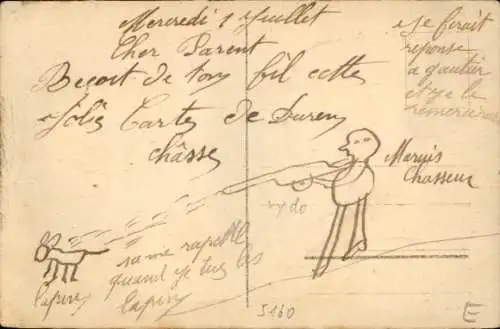 Mercredi 1 Juillet
Cher Parent
Reçoit de ton fil cette
Jolis Carte de
châsse
Je ferait
réponse
a gautier
et je le
remercierais
Maryis
Chasseur
sa me rapelle
quand je tue les
lapin
lapin
5160
E